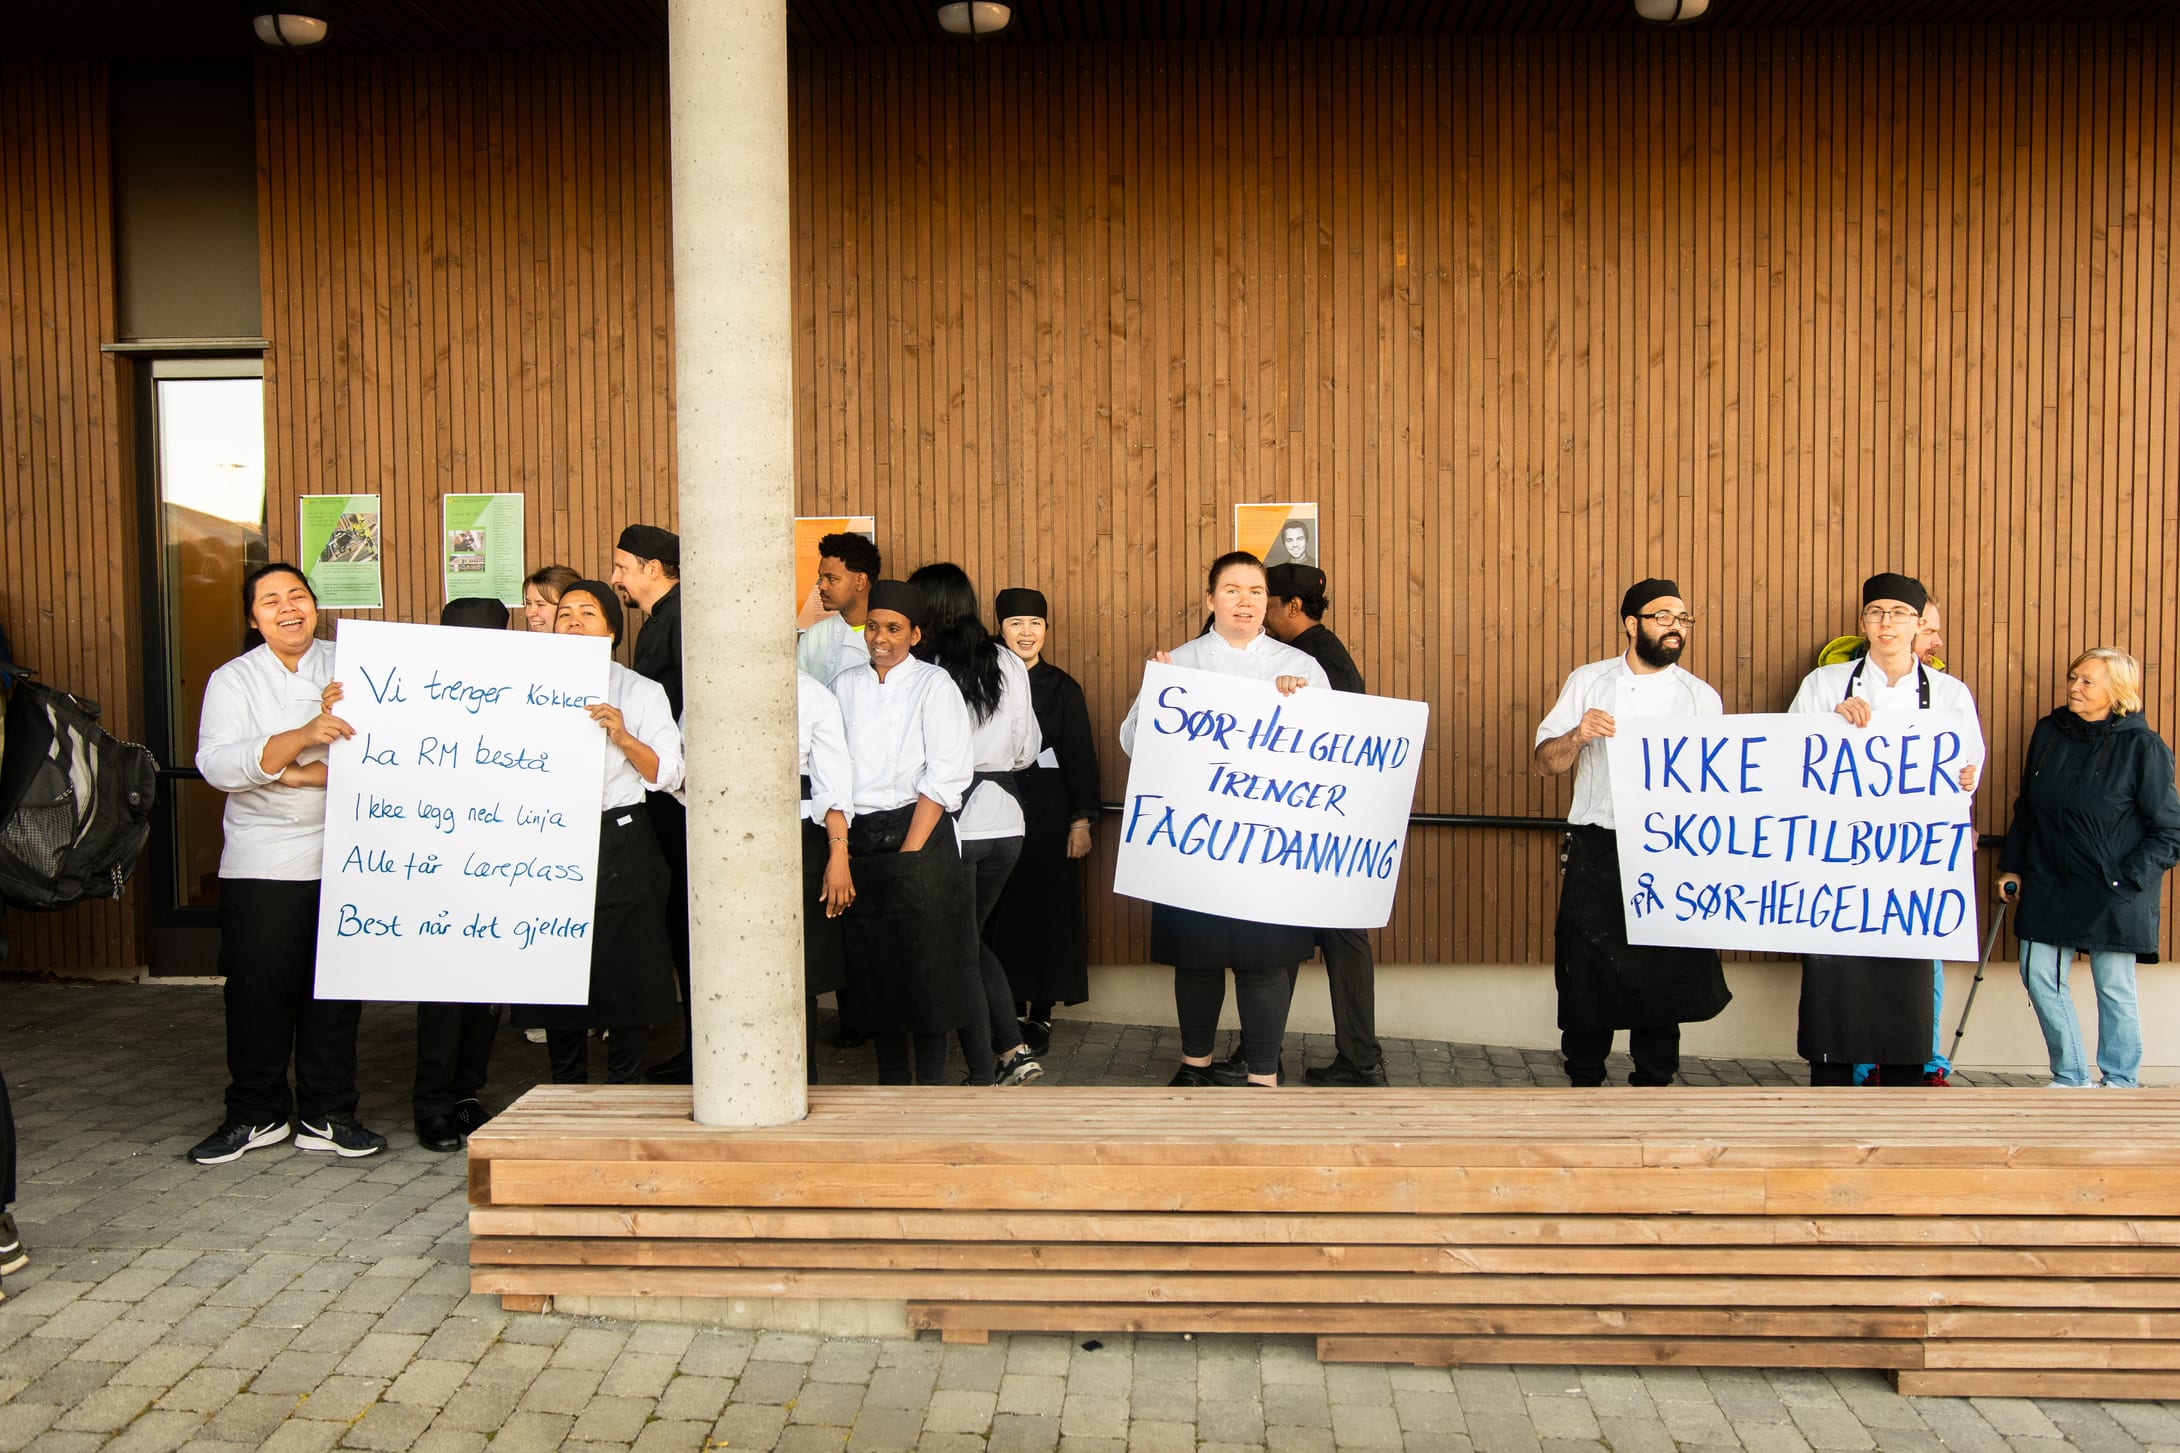 Vi trenger kokker
La RM bestå
Ikke legg ned linja
Alle får læreplass
Best når det gjelder
SØR-HELGELAND
TRENGER
FAGUTDANNING
IKKE RASÉR
SKOLETILBUDET
PÅ SØR-HELGELAND